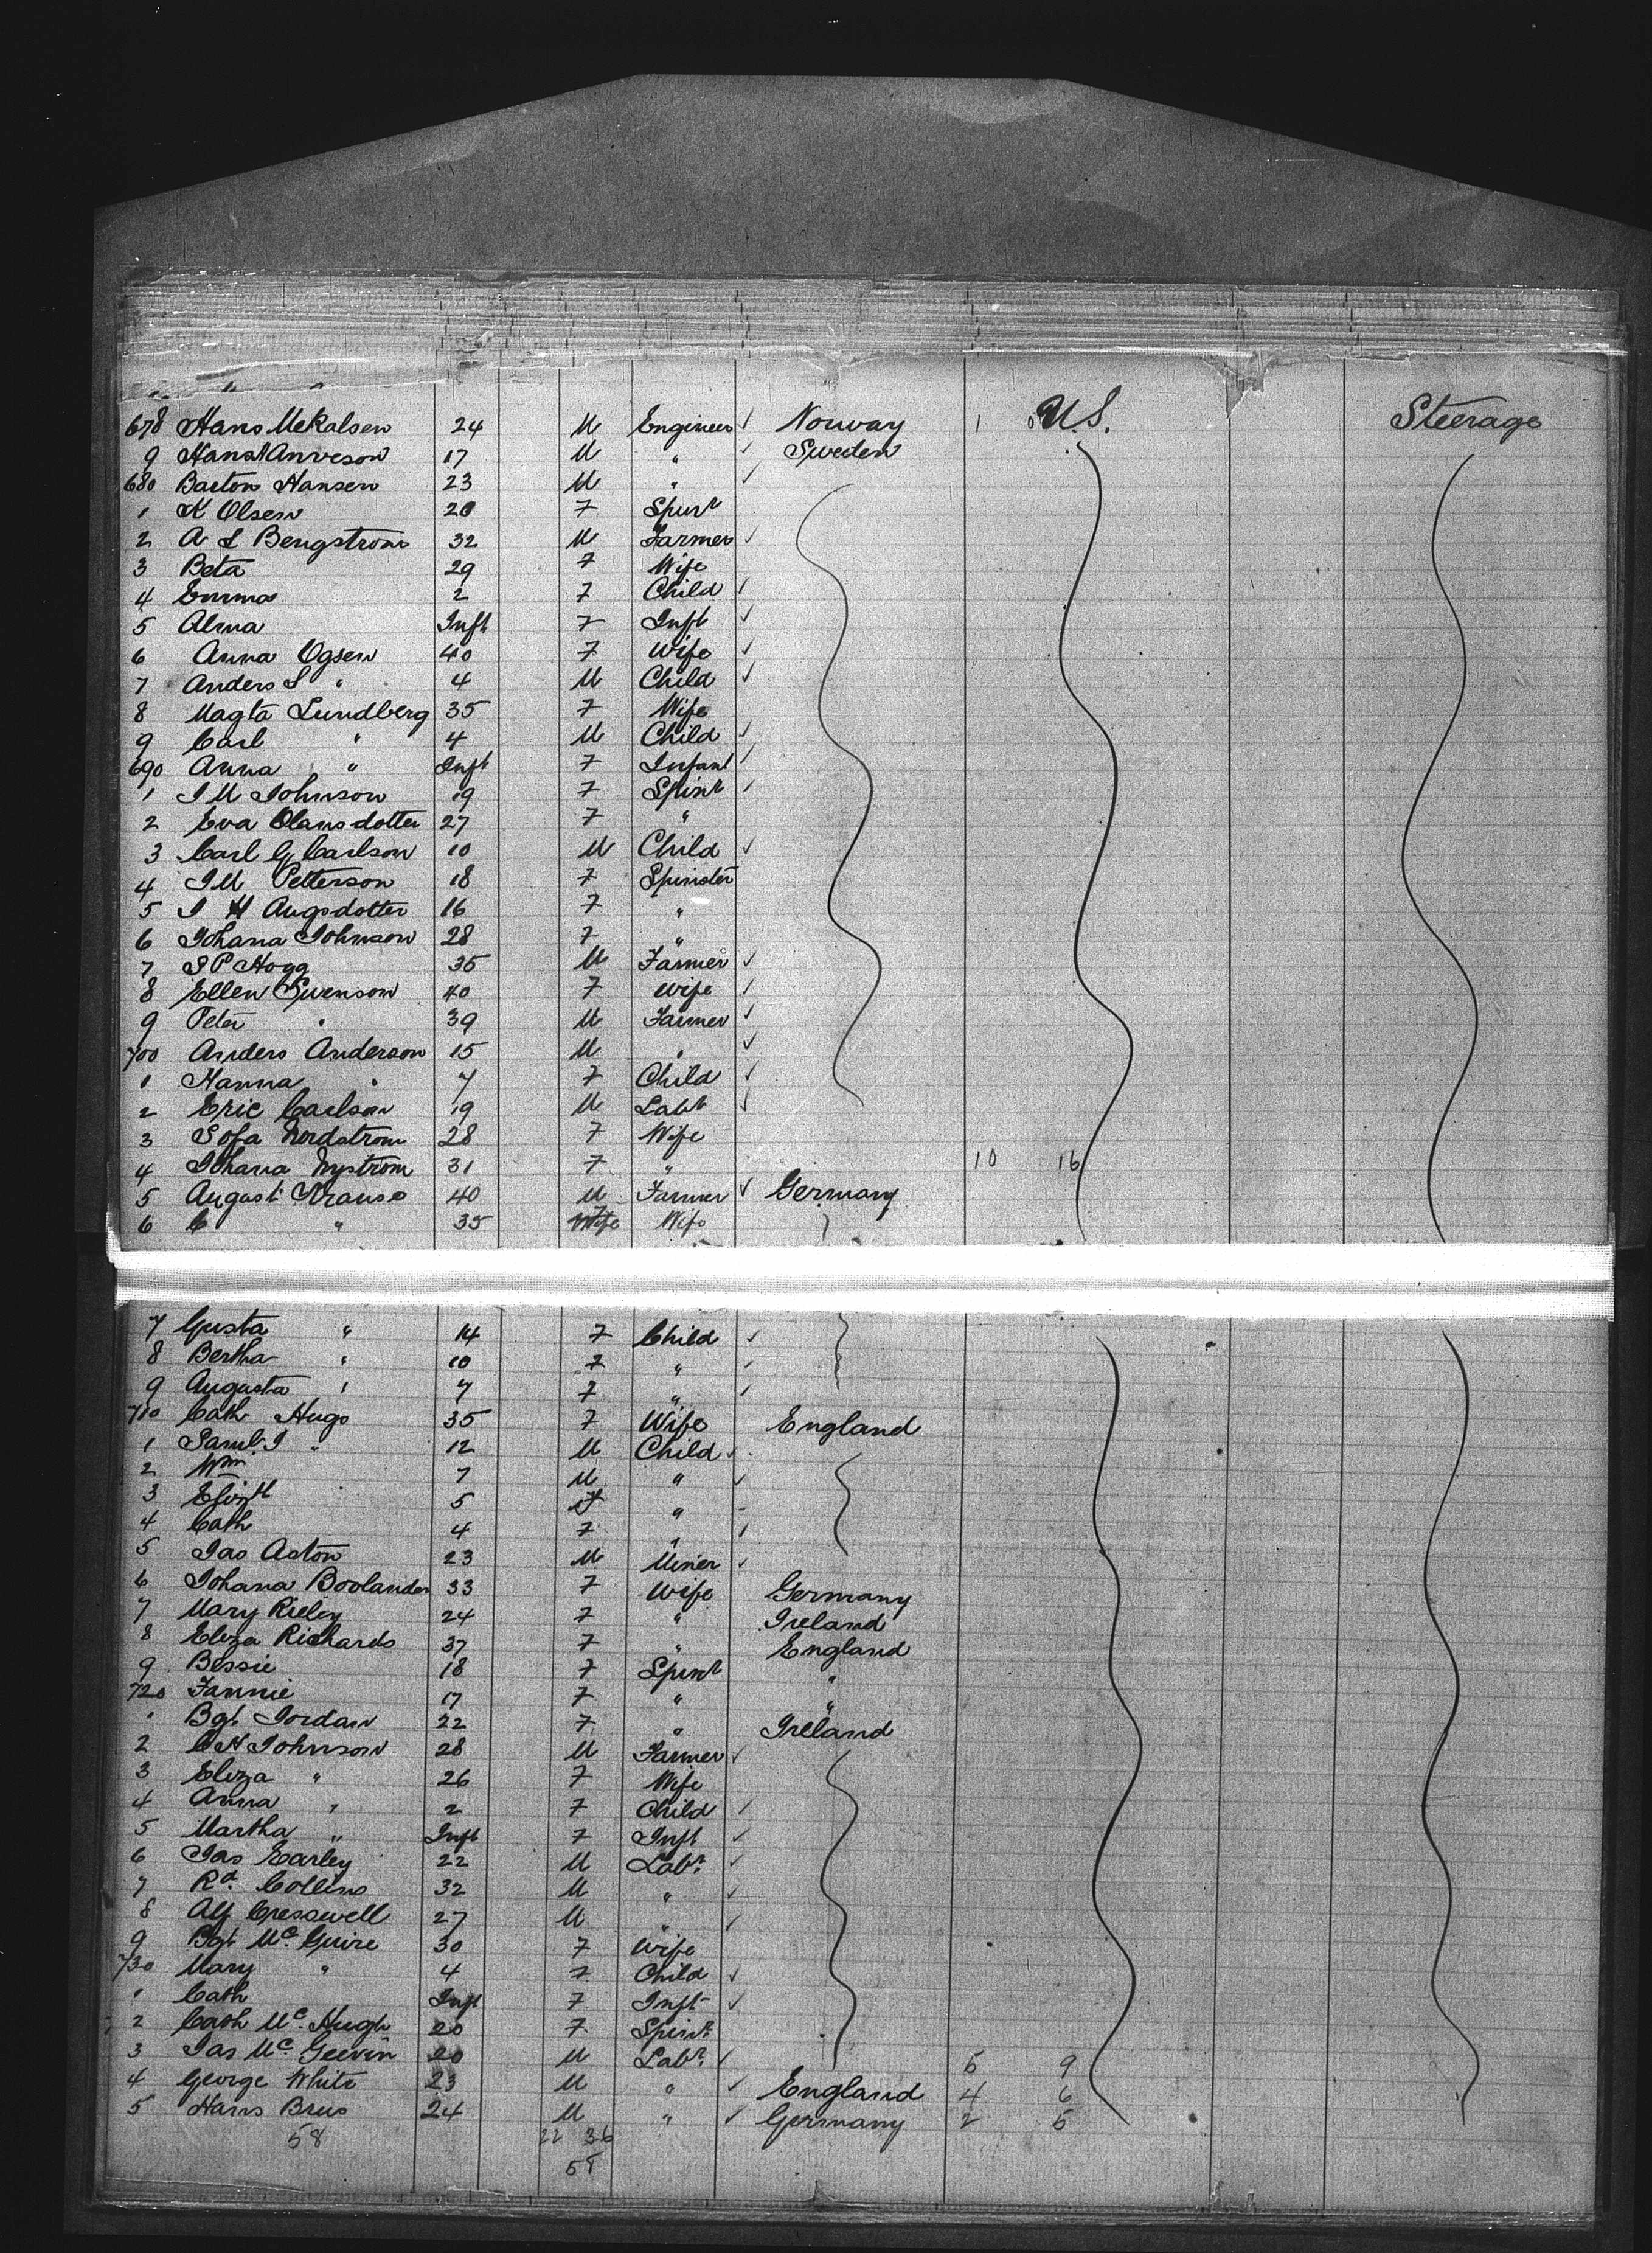 678 Hans Mekalsen 24 M Engineer ✓ Norway 1 U.S. Steerage
9 Hans Anveson 17 M " ✓ Sweden
680 Barton Hansen 23 M " ✓
1 K Olsen 20 F Spinr
2 A L Bengstrom 32 M Farmer ✓
3 Beta 29 F Wife
4 Emma 2 F Child ✓
5 Alma Inft F Inft ✓
6 Anna Ogsen 40 F Wife ✓
7 Anders L " 4 M Child ✓
8 Magta Lundberg 35 F Wife
9 Carl " 4 M Child ✓
690 Anna " Inft F Infant ✓
1 I M Johnson 19 F Spinr ✓
2 Eva Olansdotter 27 F "
3 Carl G Carlson 10 M Child ✓
4 I M Petterson 18 F Spinster
5 I H Augsdotter 16 F "
6 Johana Johnson 28 F "
7 S P Hogg 35 M Farmer ✓
8 Ellen Swenson 40 F Wife ✓
9 Peter " 39 M Farmer ✓
700 Anders Anderson 15 M " ✓
1 Hanna " 7 F Child ✓
2 Eric Carlson 19 M Labr ✓
3 Sofa Nordstrom 28 F Wife
4 Johana Nystrom 31 F " 10 16
5 August Krause 40 M Farmer ✓ Germany
6 C " 35 F Wife
7 Gusta " 14 F Child ✓
8 Bertha " 10 F " ✓
9 Augusta " 7 F " ✓
710 Cath Hugo 35 F Wife England
1 Saml. J " 12 M Child ✓
2 Wm 7 M " ✓
3 Elizth 5 F "
4 Cath 4 F " ✓
5 Jas Aston 23 M Miner ✓
6 Johana Boolander 33 F Wife Germany
7 Mary Rieley 24 F " Ireland
8 Eliza Richards 37 F " England
9 Bessie 18 F Spinr "
720 Fannie 17 F " "
" Bgt. Jordan 22 F " Ireland
2 C H Johnson 28 M Farmer ✓
3 Eliza " 26 F Wife
4 Anna " 2 F Child ✓
5 Martha " Inft F Inft ✓
6 Jas Earley 22 M Labr. ✓
7 Rd. Collins 32 M " ✓
8 Alf Cresswell 27 M " ✓
9 Bgt McGuire 30 F Wife
730 Mary " 4 F Child ✓
1 Cath Inft F Inft ✓
2 Cath McHugh 20 F Spinr.
3 Jas McGeevin 20 M Labr. ✓ 5 9
4 George White 23 M " ✓ England 4 6
5 Hans Brus 24 M " ✓ Germany 2 5
58 22 36
58